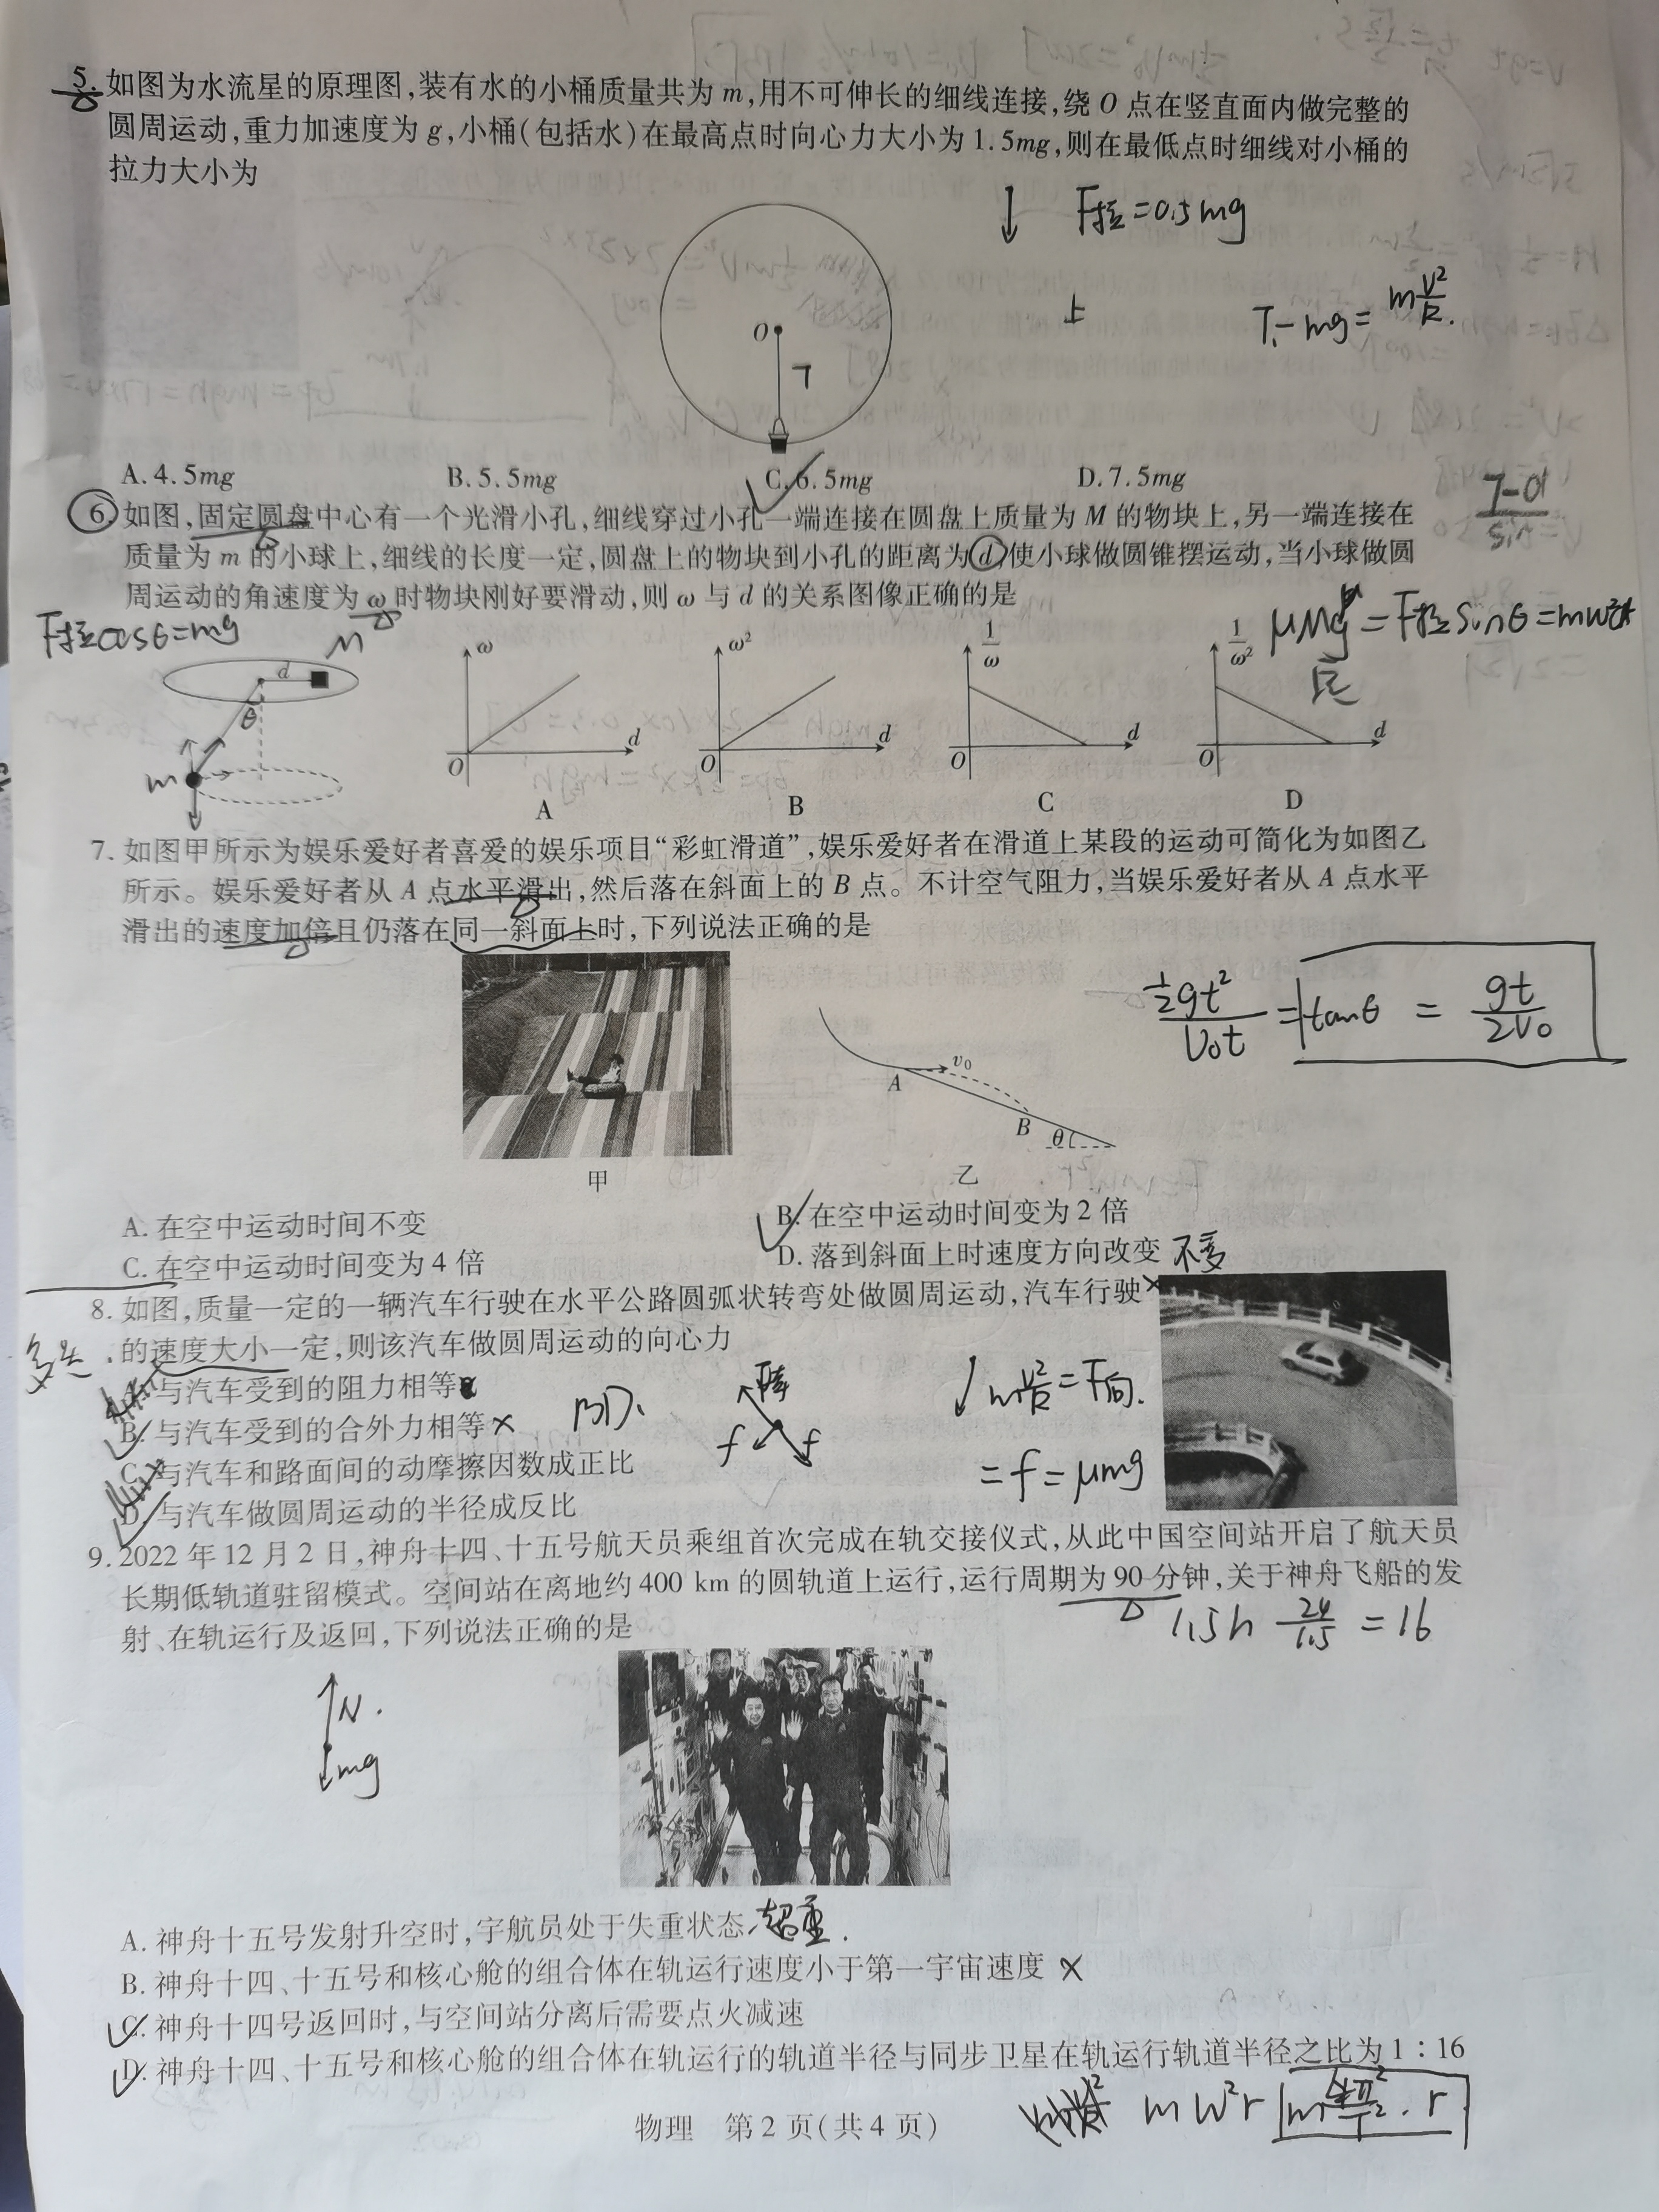 5. 如图为水流星的原理图,装有水的小桶质量共为 m,用不可伸长的细线连接,绕 O 点在竖直面内做完整的
圆周运动,重力加速度为 g,小桶(包括水)在最高点时向心力大小为 1.5mg,则在最低点时细线对小桶的
拉力大小为
F拉=0.5mg
上
T-mg=mv²/R.
O
A. 4.5mg B. 5.5mg C. 6.5mg D. 7.5mg
6. 如图,固定圆盘中心有一个光滑小孔,细线穿过小孔一端连接在圆盘上质量为 M 的物块上,另一端连接在
质量为 m 的小球上,细线的长度一定,圆盘上的物块到小孔的距离为 d,使小球做圆锥摆运动,当小球做圆
周运动的角速度为 ω 时物块刚好要滑动,则 ω 与 d 的关系图像正确的是
F拉cosθ=mg
M
d
θ
m
ω d O A
ω² d O B
1/ω d O C
1/ω² d O D
定
7. 如图甲所示为娱乐爱好者喜爱的娱乐项目“彩虹滑道”,娱乐爱好者在滑道上某段的运动可简化为如图乙
所示。娱乐爱好者从 A 点水平滑出,然后落在斜面上的 B 点。不计空气阻力,当娱乐爱好者从 A 点水平
滑出的速度加倍且仍落在同一斜面上时,下列说法正确的是
½gt²/V₀t=tanθ=gt/2V₀
A v₀ B θ
甲 乙
A. 在空中运动时间不变 B. 在空中运动时间变为 2 倍
C. 在空中运动时间变为 4 倍 D. 落到斜面上时速度方向改变 不变
8. 如图,质量一定的一辆汽车行驶在水平公路圆弧状转弯处做圆周运动,汽车行驶
的速度大小一定,则该汽车做圆周运动的向心力
多选
A. 与汽车受到的阻力相等
B. 与汽车受到的合外力相等 ×
BD.
f f
mv²/R=F向.
C. 与汽车和路面间的动摩擦因数成正比
=f=μmg
D. 与汽车做圆周运动的半径成反比
9. 2022 年 12 月 2 日,神舟十四、十五号航天员乘组首次完成在轨交接仪式,从此中国空间站开启了航天员
长期低轨道驻留模式。空间站在离地约 400 km 的圆轨道上运行,运行周期为 90 分钟,关于神舟飞船的发
射、在轨运行及返回,下列说法正确的是
1.5h 24/1.5=16
N.
mg
A. 神舟十五号发射升空时,宇航员处于失重状态 超重.
B. 神舟十四、十五号和核心舱的组合体在轨运行速度小于第一宇宙速度 ×
C. 神舟十四号返回时,与空间站分离后需要点火减速
D. 神舟十四、十五号和核心舱的组合体在轨运行的轨道半径与同步卫星在轨运行轨道半径之比为 1∶16
mw²r m4π²/T².r
物理 第 2 页(共 4 页)